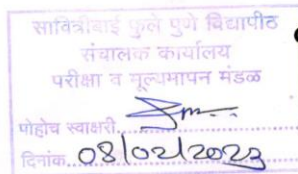 सावित्रीबाई फुले पुणे विद्यापीठ
संचालक कार्यालय
परीक्षा व मूल्यमापन मंडळ
पोहोच स्वाक्षरी
दिनांक. 08/02/2023